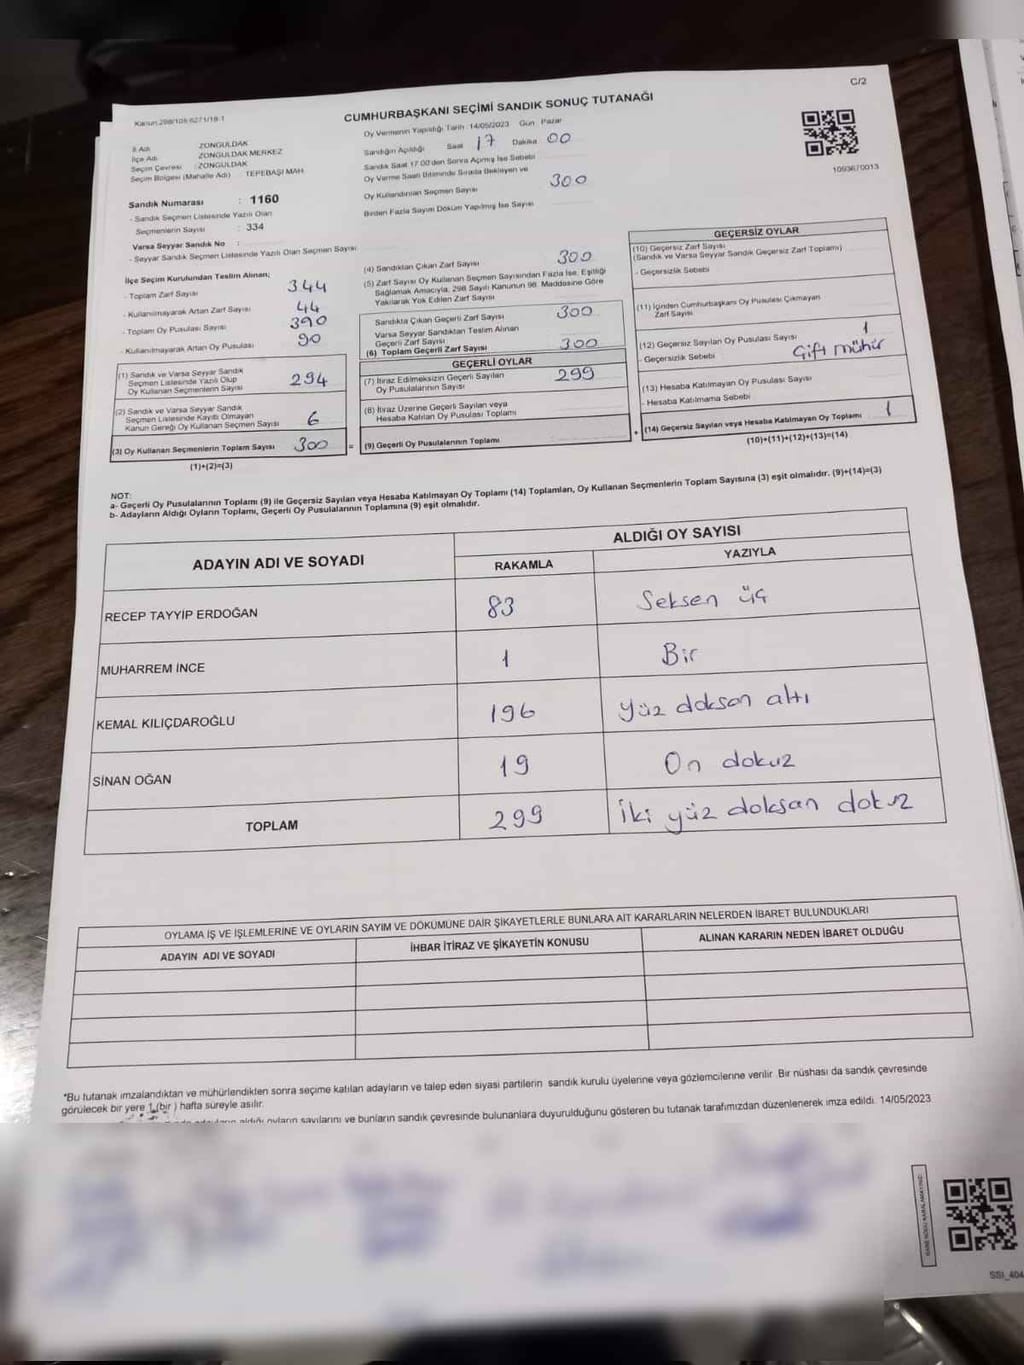 C/2
Kanun 298/105 6271/19-1
CUMHURBAŞKANI SEÇİMİ SANDIK SONUÇ TUTANAĞI
İl Adı ZONGULDAK
İlçe Adı ZONGULDAK MERKEZ
Seçim Çevresi : ZONGULDAK
Seçim Bölgesi (Mahalle Adı) : TEPEBAŞI MAH.
Sandık Numarası : 1160
- Sandık Seçmen Listesinde Yazılı Olan
Seçmenlerin Sayısı : 334
Varsa Seyyar Sandık No :
- Seyyar Sandık Seçmen Listesinde Yazılı Olan Seçmen Sayısı
Oy Vermenin Yapıldığı Tarih : 14/05/2023 Gün Pazar
Sandığın Açıldığı Saat 17 Dakika 00
Sandık Saat 17.00'den Sonra Açılmış İse Sebebi
Oy Verme Saati Bitiminde Sırada Bekleyen ve
Oy Kullandırılan Seçmen Sayısı 300
Birden Fazla Sayım Döküm Yapılmış İse Sayısı
1093670013
İlçe Seçim Kurulundan Teslim Alınan;
- Toplam Zarf Sayısı 344
- Kullanılmayarak Artan Zarf Sayısı 44
- Toplam Oy Pusulası Sayısı 390
- Kullanılmayarak Artan Oy Pusulası 90
(1) Sandık ve Varsa Seyyar Sandık
Seçmen Listesinde Yazılı Olup
Oy Kullanan Seçmenlerin Sayısı 294
(2) Sandık ve Varsa Seyyar Sandık
Seçmen Listesinde Kayıtlı Olmayan
Kanun Gereği Oy Kullanan Seçmen Sayısı 6
(3) Oy Kullanan Seçmenlerin Toplam Sayısı 300 =
(1)+(2)=(3)
(4) Sandıktan Çıkan Zarf Sayısı 300
(5) Zarf Sayısı Oy Kullanan Seçmen Sayısından Fazla İse, Eşitliği
Sağlamak Amacıyla, 298 Sayılı Kanunun 98. Maddesine Göre
Yakılarak Yok Edilen Zarf Sayısı
Sandıkta Çıkan Geçerli Zarf Sayısı 300
Varsa Seyyar Sandıktan Teslim Alınan
Geçerli Zarf Sayısı
(6) Toplam Geçerli Zarf Sayısı 300
GEÇERLİ OYLAR
(7) İtiraz Edilmeksizin Geçerli Sayılan
Oy Pusulalarının Sayısı 299
(8) İtiraz Üzerine Geçerli Sayılan veya
Hesaba Katılan Oy Pusulası Toplamı
(9) Geçerli Oy Pusulalarının Toplamı +
GEÇERSİZ OYLAR
(10) Geçersiz Zarf Sayısı
(Sandık ve Varsa Seyyar Sandık Geçersiz Zarf Toplamı)
- Geçersizlik Sebebi
(11) İçinden Cumhurbaşkanı Oy Pusulası Çıkmayan
Zarf Sayısı
(12) Geçersiz Sayılan Oy Pusulası Sayısı 1
- Geçersizlik Sebebi Çift mühür
(13) Hesaba Katılmayan Oy Pusulası Sayısı
- Hesaba Katılmama Sebebi
(14) Geçersiz Sayılan veya Hesaba Katılmayan Oy Toplamı 1
(10)+(11)+(12)+(13)=(14)
NOT:
a- Geçerli Oy Pusulalarının Toplamı (9) ile Geçersiz Sayılan veya Hesaba Katılmayan Oy Toplamı (14) Toplamları, Oy Kullanan Seçmenlerin Toplam Sayısına (3) eşit olmalıdır. (9)+(14)=(3)
b- Adayların Aldığı Oyların Toplamı, Geçerli Oy Pusulalarının Toplamına (9) eşit olmalıdır.
ADAYIN ADI VE SOYADI
ALDIĞI OY SAYISI
RAKAMLA YAZIYLA
RECEP TAYYİP ERDOĞAN 83 Seksen üç
MUHARREM İNCE 1 Bir
KEMAL KILIÇDAROĞLU 196 yüz doksan altı
SİNAN OĞAN 19 On dokuz
TOPLAM 299 İki yüz doksan dokuz
OYLAMA İŞ VE İŞLEMLERİNE VE OYLARIN SAYIM VE DÖKÜMÜNE DAİR ŞİKAYETLERLE BUNLARA AİT KARARLARIN NELERDEN İBARET BULUNDUKLARI
ADAYIN ADI VE SOYADI İHBAR İTİRAZ VE ŞİKAYETİN KONUSU ALINAN KARARIN NEDEN İBARET OLDUĞU
*Bu tutanak imzalandıktan ve mühürlendikten sonra seçime katılan adayların ve talep eden siyasi partilerin sandık kurulu üyelerine veya gözlemcilerine verilir. Bir nüshası da sandık çevresinde
görülecek bir yere 1 (bir) hafta süreyle asılır.
aldığı oyların sayılarını ve bunların sandık çevresinde bulunanlara duyurulduğunu gösteren bu tutanak tarafımızdan düzenlenerek imza edildi. 14/05/2023
SSI_404